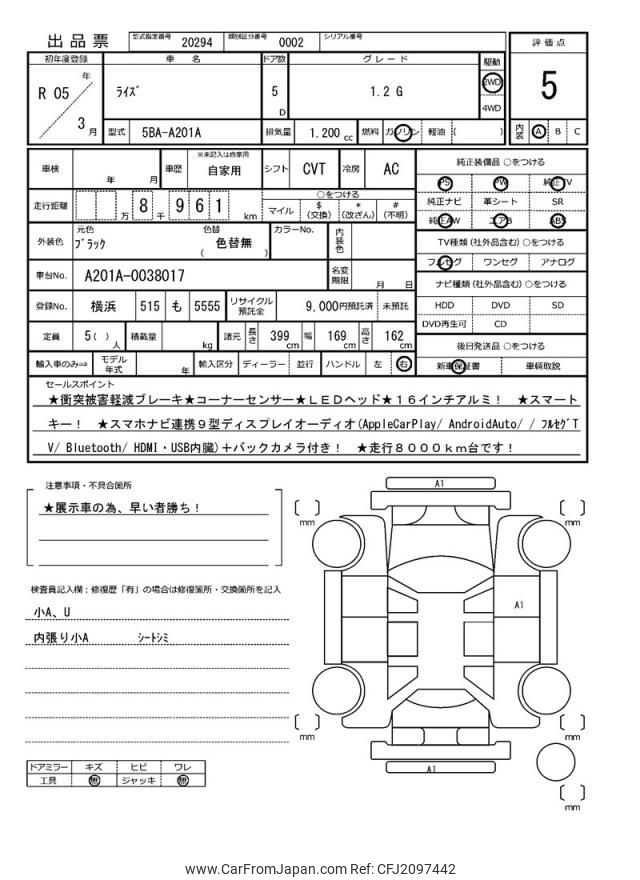 出品票 型式指定番号 20294 類別区分番号 0002 シリアル番号
評価点
5
内装 A B C
初年度登録 車名 ドア数 グレード 駆動
R 05 年 3 月 ライズ 5 D 1.2 G 2WD 4WD
型式 5BA-A201A 排気量 1.200 cc 燃料 ガソリン 軽油 ( )
車検 年 月 車歴 ※未記入は自家用 自家用 シフト CVT 冷房 AC
走行距離 万 8 千 9 6 1 km ○をつける マイル $(交換) *(改ざん) #(不明)
外装色 元色 ブラック 色替 ( 色替無 ) カラーNo. 内装色
車台No. A201A-0038017 名変期限 月 日
登録No. 横浜 515 も 5555 リサイクル預託金 9,000円預託済 未預託
定員 5( ) 人 積載量 kg 諸元 長さ 399 cm 幅 169 cm 高さ 162 cm
輸入車のみ⇒ モデル年式 年 輸入区分 ディーラー 並行 ハンドル 左 右
純正装備品 ○をつける
PS PW 純正TV
純正ナビ 革シート SR
純正AW エアB ABS
TV種類 (社外品含む) ○をつける
フルセグ ワンセグ アナログ
ナビ種類 (社外品含む) ○をつける
HDD DVD SD
DVD再生可 CD
後日発送品 ○をつける
新車保証書 車輌取説
セールスポイント
★衝突被害軽減ブレーキ★コーナーセンサー★LEDヘッド★16インチアルミ! ★スマート
キー! ★スマホナビ連携9型ディスプレイオーディオ(AppleCarPlay/ AndroidAuto/ / フルセグT
V/ Bluetooth/ HDMI・USB内臓)+バックカメラ付き! ★走行8000km台です!
注意事項・不具合箇所
★展示車の為、早い者勝ち!
検査員記入欄:修復歴「有」の場合は修復箇所・交換箇所を記入
小A、U
内張り小A シートシミ
ドアミラー キズ ヒビ ワレ
工具 無 ジャッキ 無
A1
mm
mm
A1
mm
mm
A1
mm
www.CarFromJapan.com Ref: CFJ2097442